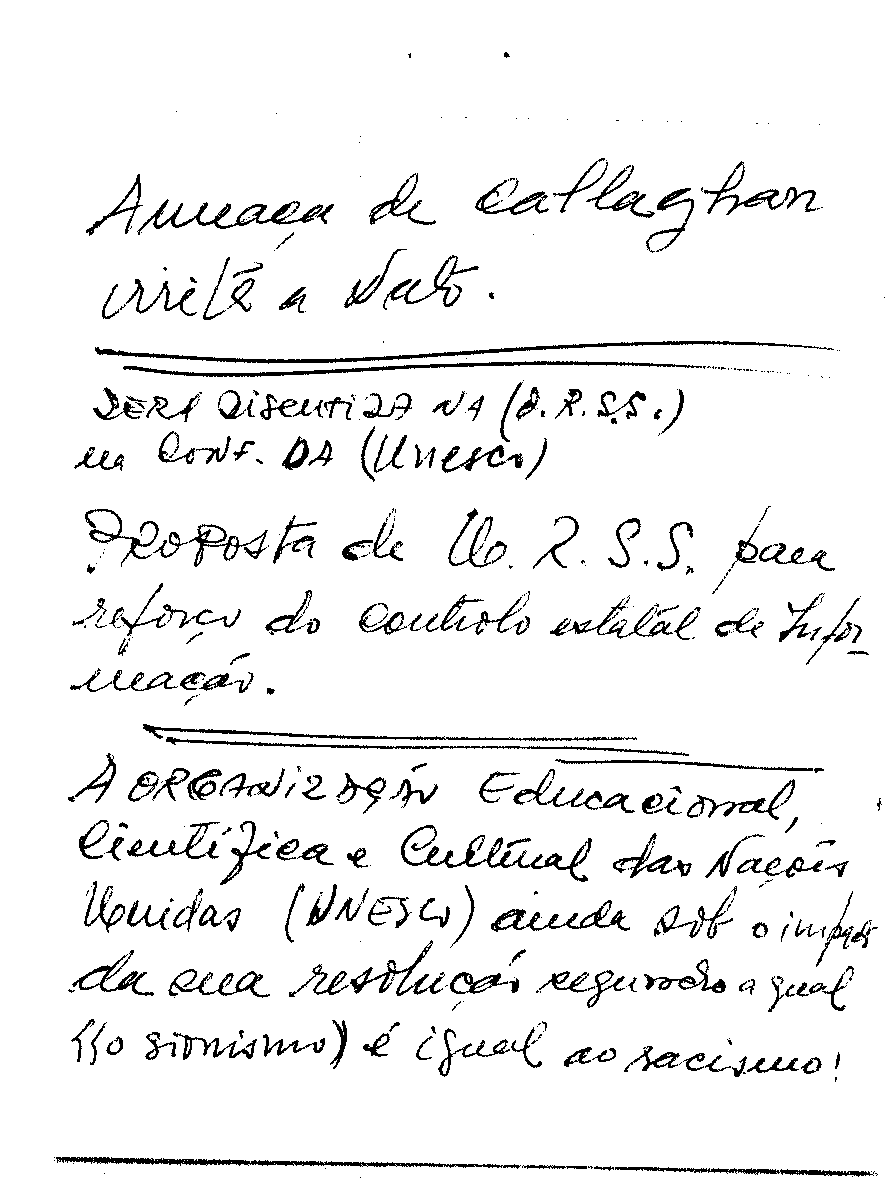 Ameaça de Callaghan
irrita a Nato.
SERÁ DISCUTIDA NA (U.R.S.S.)
na CONF. DA (Unesco)
PROPOSTA de U.R.S.S. para
reforço do controlo estatal de Infor-
mação.
A ORGANIZAÇÃO Educacional,
Científica e Cultural das Nações
Unidas (UNESCO) ainda sob o impacto
da sua resolução segundo a qual
((o sionismo)) é igual ao racismo!